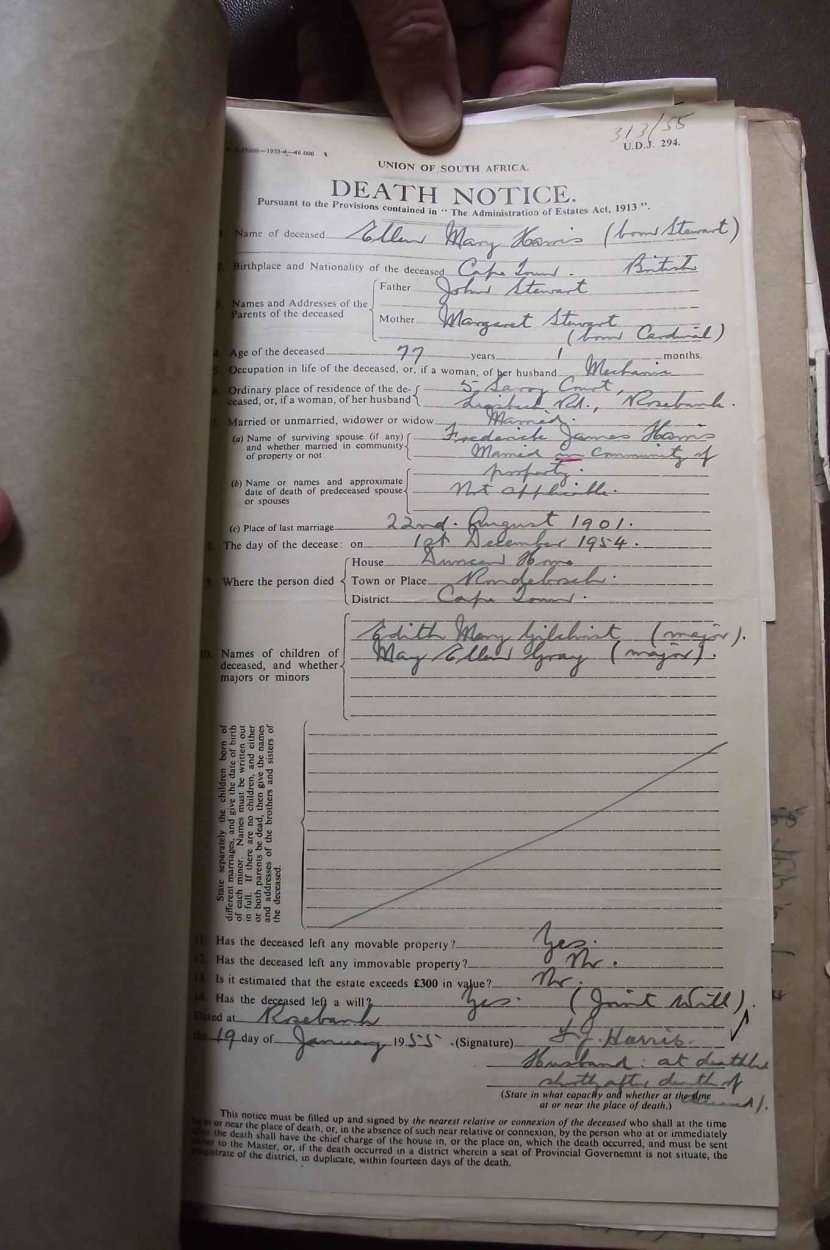 313/55
U.D.J. 294.
1953-4—48.000 S
UNION OF SOUTH AFRICA.
DEATH NOTICE.
Pursuant to the Provisions contained in “ The Administration of Estates Act, 1913 ”.
1. Name of deceased Ellen Mary Harris (born Stewart)
2. Birthplace and Nationality of the deceased Cape Town. British
3. Names and Addresses of the Parents of the deceased
Father John Stewart
Mother Margaret Stewart
(born Cardinal)
4. Age of the deceased 77 years 1 months.
5. Occupation in life of the deceased, or, if a woman, of her husband Mechanic
6. Ordinary place of residence of the deceased, or, if a woman, of her husband
5 Savoy Court,
Liesbeek Rd., Rosebank.
7. Married or unmarried, widower or widow Married.
(a) Name of surviving spouse (if any) and whether married in community of property or not
Frederick James Harris
Married in Community of
property.
(b) Name or names and approximate date of death of predeceased spouse or spouses
Not applicable.
(c) Place of last marriage 22nd. August 1901.
8. The day of the decease: on 1st December 1954.
9. Where the person died
House Duncan Home
Town or Place Rondebosch.
District Cape Town.
10. Names of children of deceased, and whether majors or minors
Edith Mary Gilchrist (major).
May Ellen Gray (major).
State separately the children born of
different marriages, and give the date of birth
of each minor. Names must be written out
in full. If there are no children, and either
or both parents be dead, then give the names
and addresses of the brothers and sisters of
the deceased.
11. Has the deceased left any movable property? Yes.
12. Has the deceased left any immovable property? No.
13. Is it estimated that the estate exceeds £300 in value? No.
14. Has the deceased left a will? Yes. (Joint Will).
Dated at Rosebank
the 19 day of January 1955. (Signature) F.J. Harris.
Husband: at deathbed
shortly after death of
deceased).
(State in what capacity and whether at the time
at or near the place of death.)
This notice must be filled up and signed by the nearest relative or connexion of the deceased who shall at the time
be at or near the place of death, or, in the absence of such near relative or connexion, by the person who at or immediately
after the death shall have the chief charge of the house in, or the place on, which the death occurred, and must be sent
either to the Master, or, if the death occurred in a district wherein a seat of Provincial Governemnt is not situate, the
magistrate of the district, in duplicate, within fourteen days of the death.